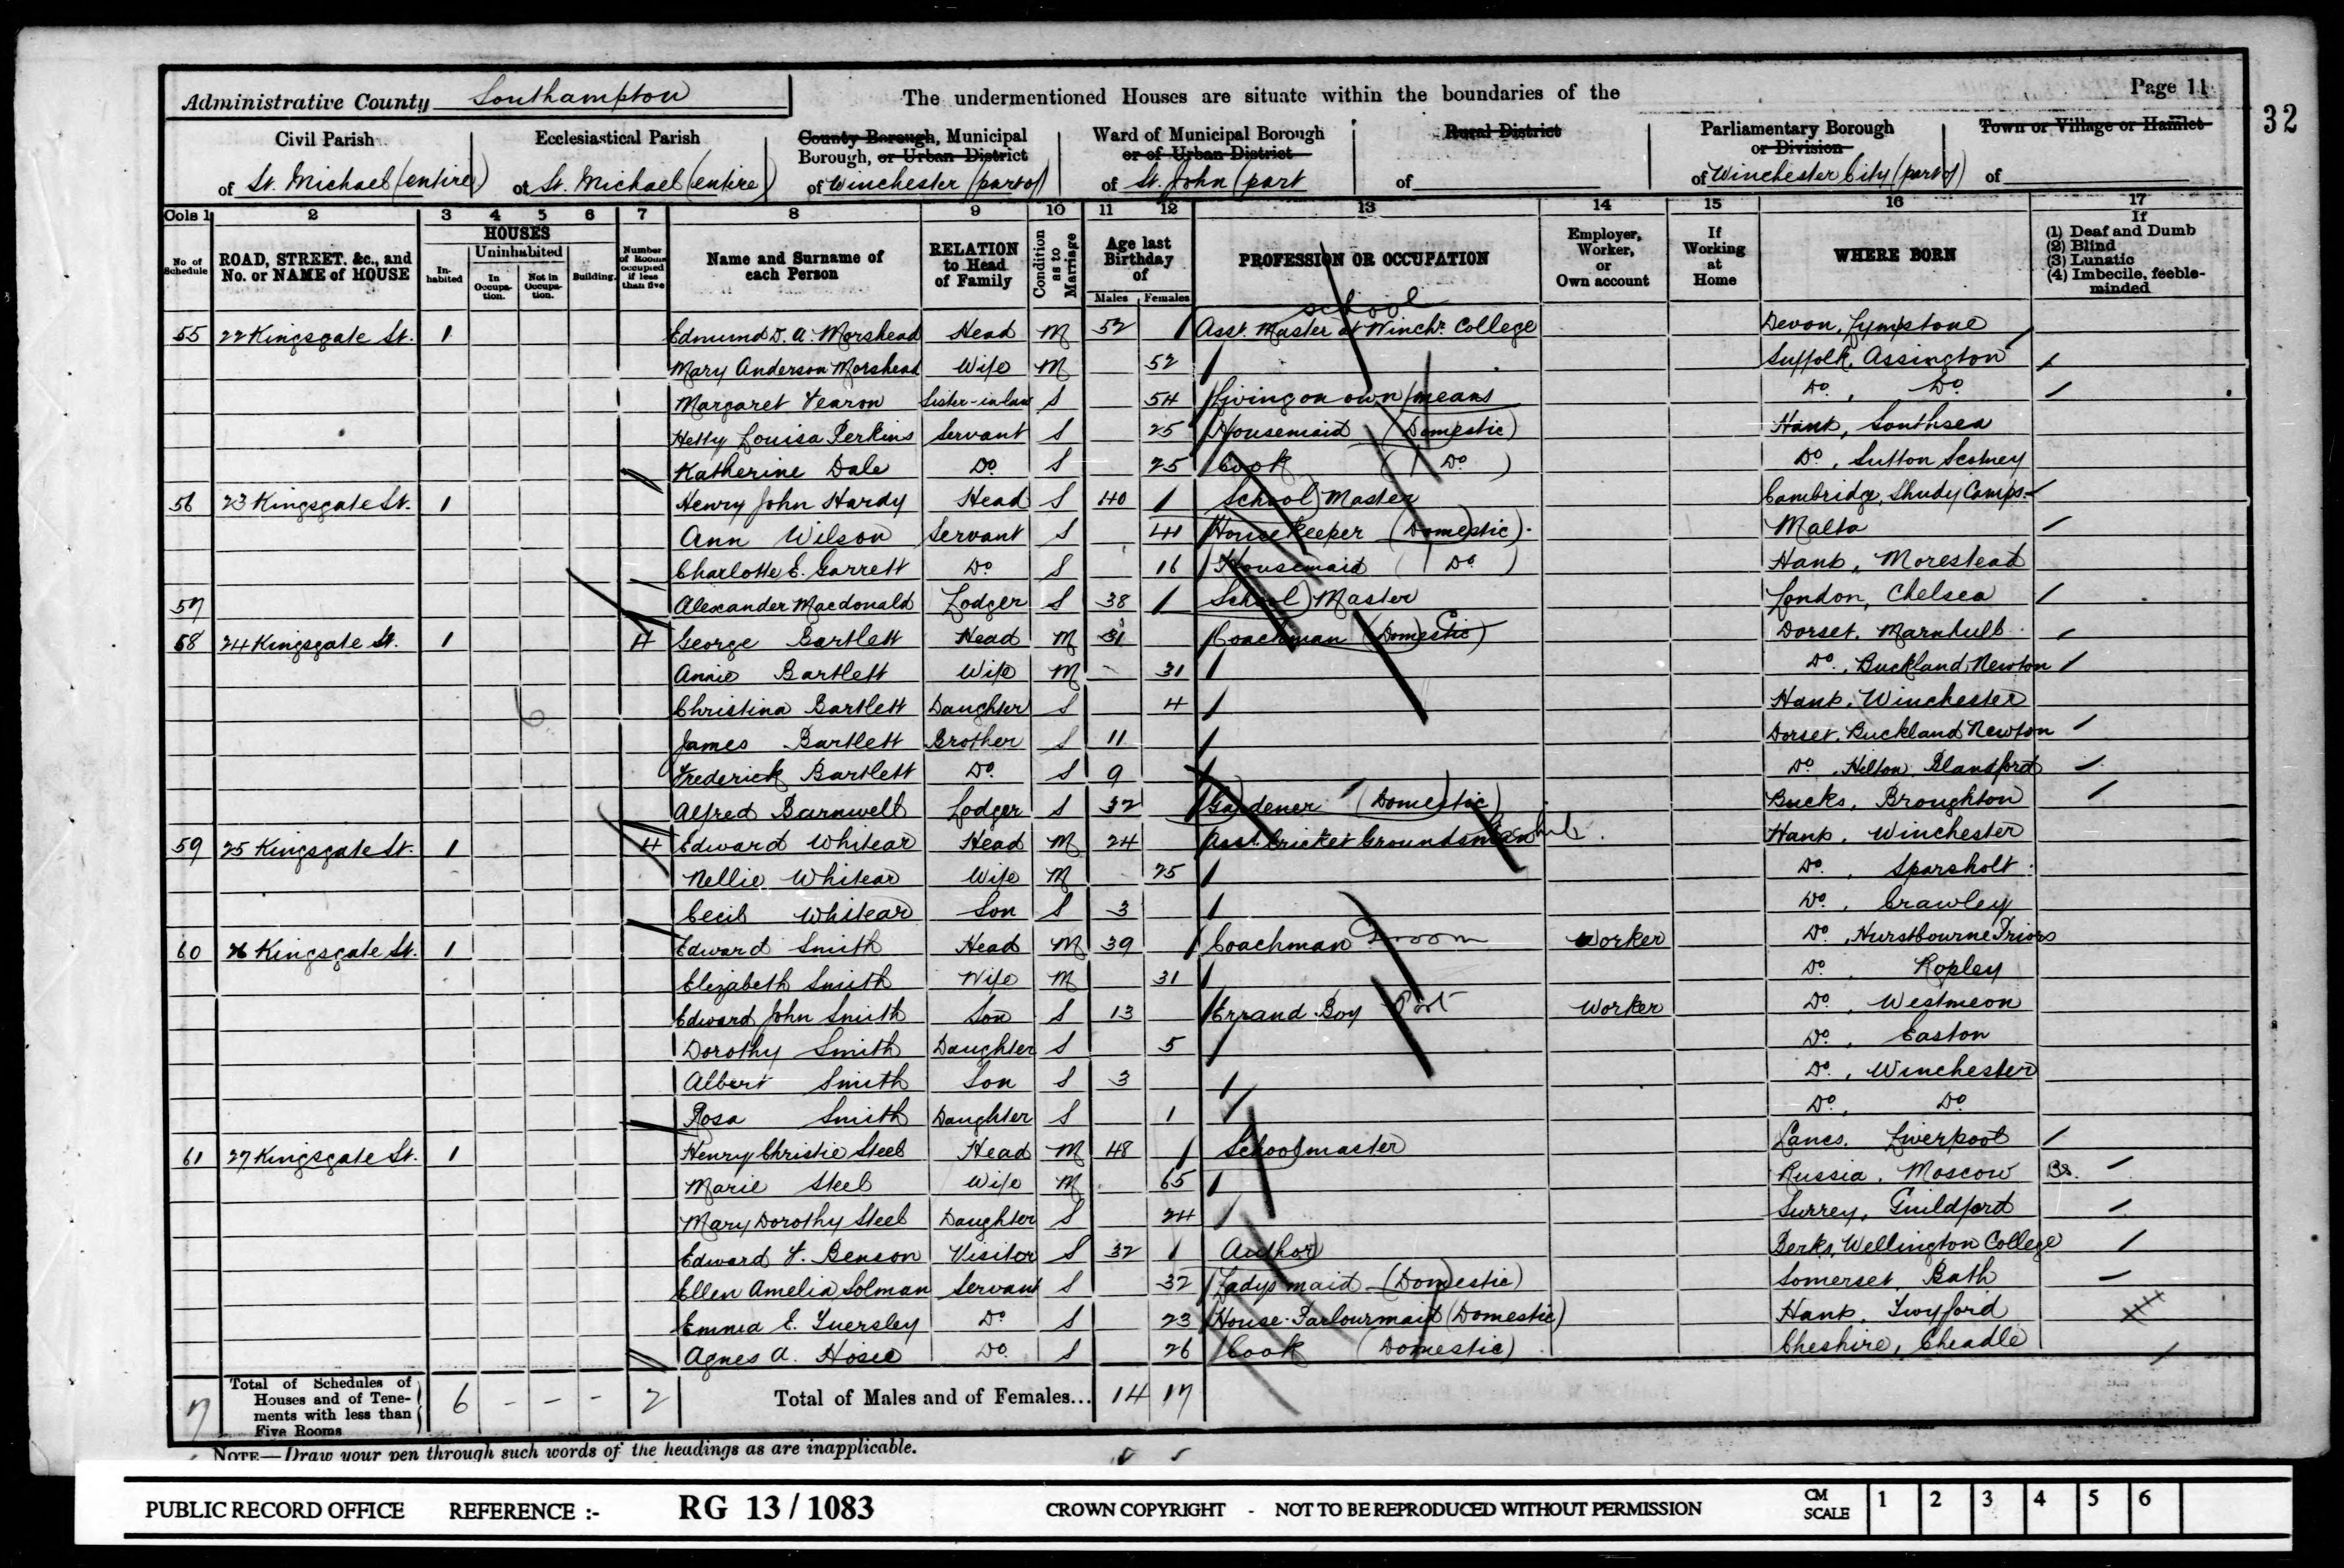 Administrative County Southampton
The undermentioned Houses are situate within the boundaries of the
Page 11
32
Civil Parish
of St. Michael (entire)
Ecclesiastical Parish
of St. Michael (entire)
County Borough, Municipal
Borough, or Urban District
of Winchester (part of)
Ward of Municipal Borough
or of Urban District
of St. John (part
Rural District
of
Parliamentary Borough
or Division
of Winchester City (part of)
Town or Village or Hamlet
of
Cols 1 2 3 4 5 6 7 8 9 10 11 12 13 14 15 16 17
No. of Schedule
ROAD, STREET, &c., and No. or NAME of HOUSE
HOUSES
Inhabited
Uninhabited
In Occupation.
Not in Occupation.
Building.
Number of Rooms occupied if less than five
Name and Surname of each Person
RELATION to Head of Family
Condition as to Marriage
Age last Birthday of
Males Females
PROFESSION OR OCCUPATION
Employer, Worker, or Own account
If Working at Home
WHERE BORN
If
(1) Deaf and Dumb
(2) Blind
(3) Lunatic
(4) Imbecile, feeble-minded
school
55 22 Kingsgate St. 1 Edmund D. A. Morshead Head M 52 Asst. Master at Winchr. College Devon, Lympstone
Mary Anderson Morshead Wife M 52 Suffolk, Assington
Margaret Fearon Sister-in-law S 54 Living on own means Do. Do.
Hetty Louisa Perkins Servant S 25 Housemaid (Domestic) Hants, Southsea
Katherine Dale Do. S 25 Cook (Do.) Do., Sutton Scotney
56 23 Kingsgate St. 1 Henry John Hardy Head S 40 School Master Cambridge, Shudy Camps
Ann Wilson Servant S 41 Housekeeper (Domestic). Malta
Charlotte E. Garrett Do. S 16 Housemaid (Do.) Hants, Morestead
57 Alexander Macdonald Lodger S 38 School Master London, Chelsea
58 24 Kingsgate St. 1 4 George Bartlett Head M 31 Coachman (Domestic) Dorset, Marnhull
Annie Bartlett Wife M 31 Do., Buckland Newton
Christina Bartlett Daughter S 4 Hants, Winchester
James Bartlett Brother S 11 Dorset, Buckland Newton
Frederick Bartlett Do. S 9 Do., Hilton, Blandford
Alfred Barnwell Lodger S 32 Gardener (Domestic) Bucks, Broughton
59 25 Kingsgate St. 1 4 Edward Whitear Head M 24 Asst. Cricket Groundsman Hants, Winchester
Nellie Whitear Wife M 25 Do., Sparsholt
Cecil Whitear Son S 3 Do., Crawley
60 26 Kingsgate St. 1 Edward Smith Head M 39 Coachman Groom Worker Do., Hurstbourne Priors
Elizabeth Smith Wife M 31 Do., Ropley
Edward John Smith Son S 13 Errand Boy Port Worker Do., Westmeon
Dorothy Smith Daughter S 5 Do., Easton
Albert Smith Son S 3 Do., Winchester
Rosa Smith Daughter S 1 Do., Do.
61 27 Kingsgate St. 1 Henry Christie Steel Head M 48 Schoolmaster Lancs. Liverpool
Marie Steel Wife M 65 Russia, Moscow Bs.
Mary Dorothy Steel Daughter S 24 Surrey, Guildford
Edward F. Benson Visitor S 32 Author Berks, Wellington College
Ellen Amelia Solman Servant S 32 Ladys maid (Domestic) Somerset, Bath
Emma E. Tuersley Do. S 23 House-Parlourmaid (Domestic) Hants, Twyford
Agnes A. Hosie Do. S 26 Cook (Domestic) Cheshire, Cheadle
6
7 Total of Schedules of Houses and of Tenements with less than Five Rooms 6 - - - 2 Total of Males and of Females... 14 17
NOTE—Draw your pen through such words of the headings as are inapplicable.
PUBLIC RECORD OFFICE REFERENCE :- RG 13 / 1083 CROWN COPYRIGHT - NOT TO BE REPRODUCED WITHOUT PERMISSION CM SCALE 1 2 3 4 5 6